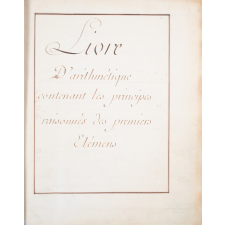 Livre
D'arithmétique
contenant les principes
raisonnés des premiers
Elémens